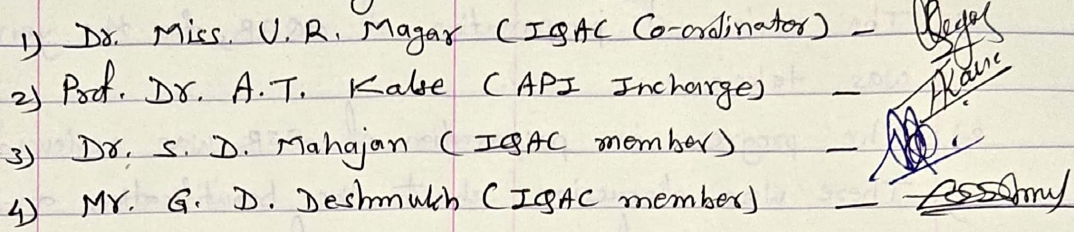 1) Dr. Miss. V. R. Magar (IQAC Co-ordinator) -
2) Prof. Dr. A. T. Kalse (API Incharge) -
3) Dr. S. D. Mahajan (IQAC member) -
4) Mr. G. D. Deshmukh (IQAC member) -